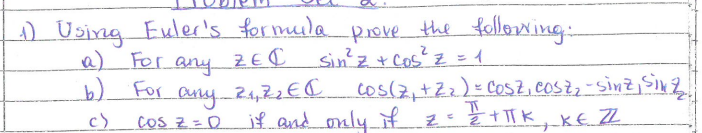 1) Using Euler's formula prove the following:
a) For any z ∈ ℂ sin²z + cos²z = 1
b) For any z₁, z₂ ∈ ℂ cos(z₁+z₂) = cosz₁cosz₂ - sinz₁sinz₂
c) cos z = 0 if and only if z = π/2 + πk, k ∈ ℤ